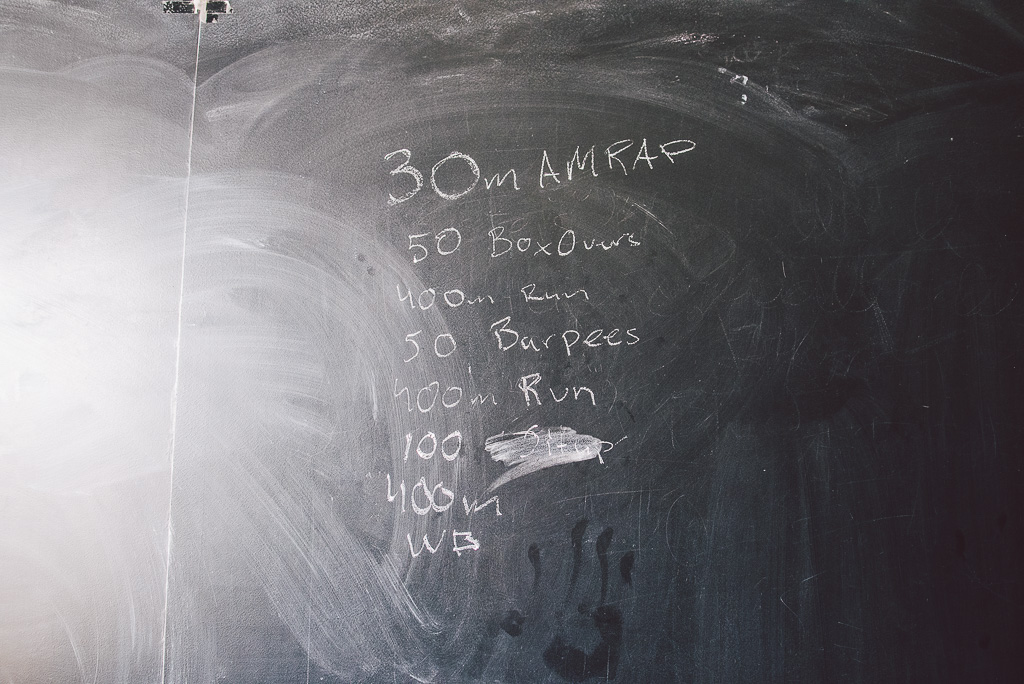 30m AMRAP
50 BoxOvers
400m Run
50 Burpees
400m Run
100 Situp
400m
WB